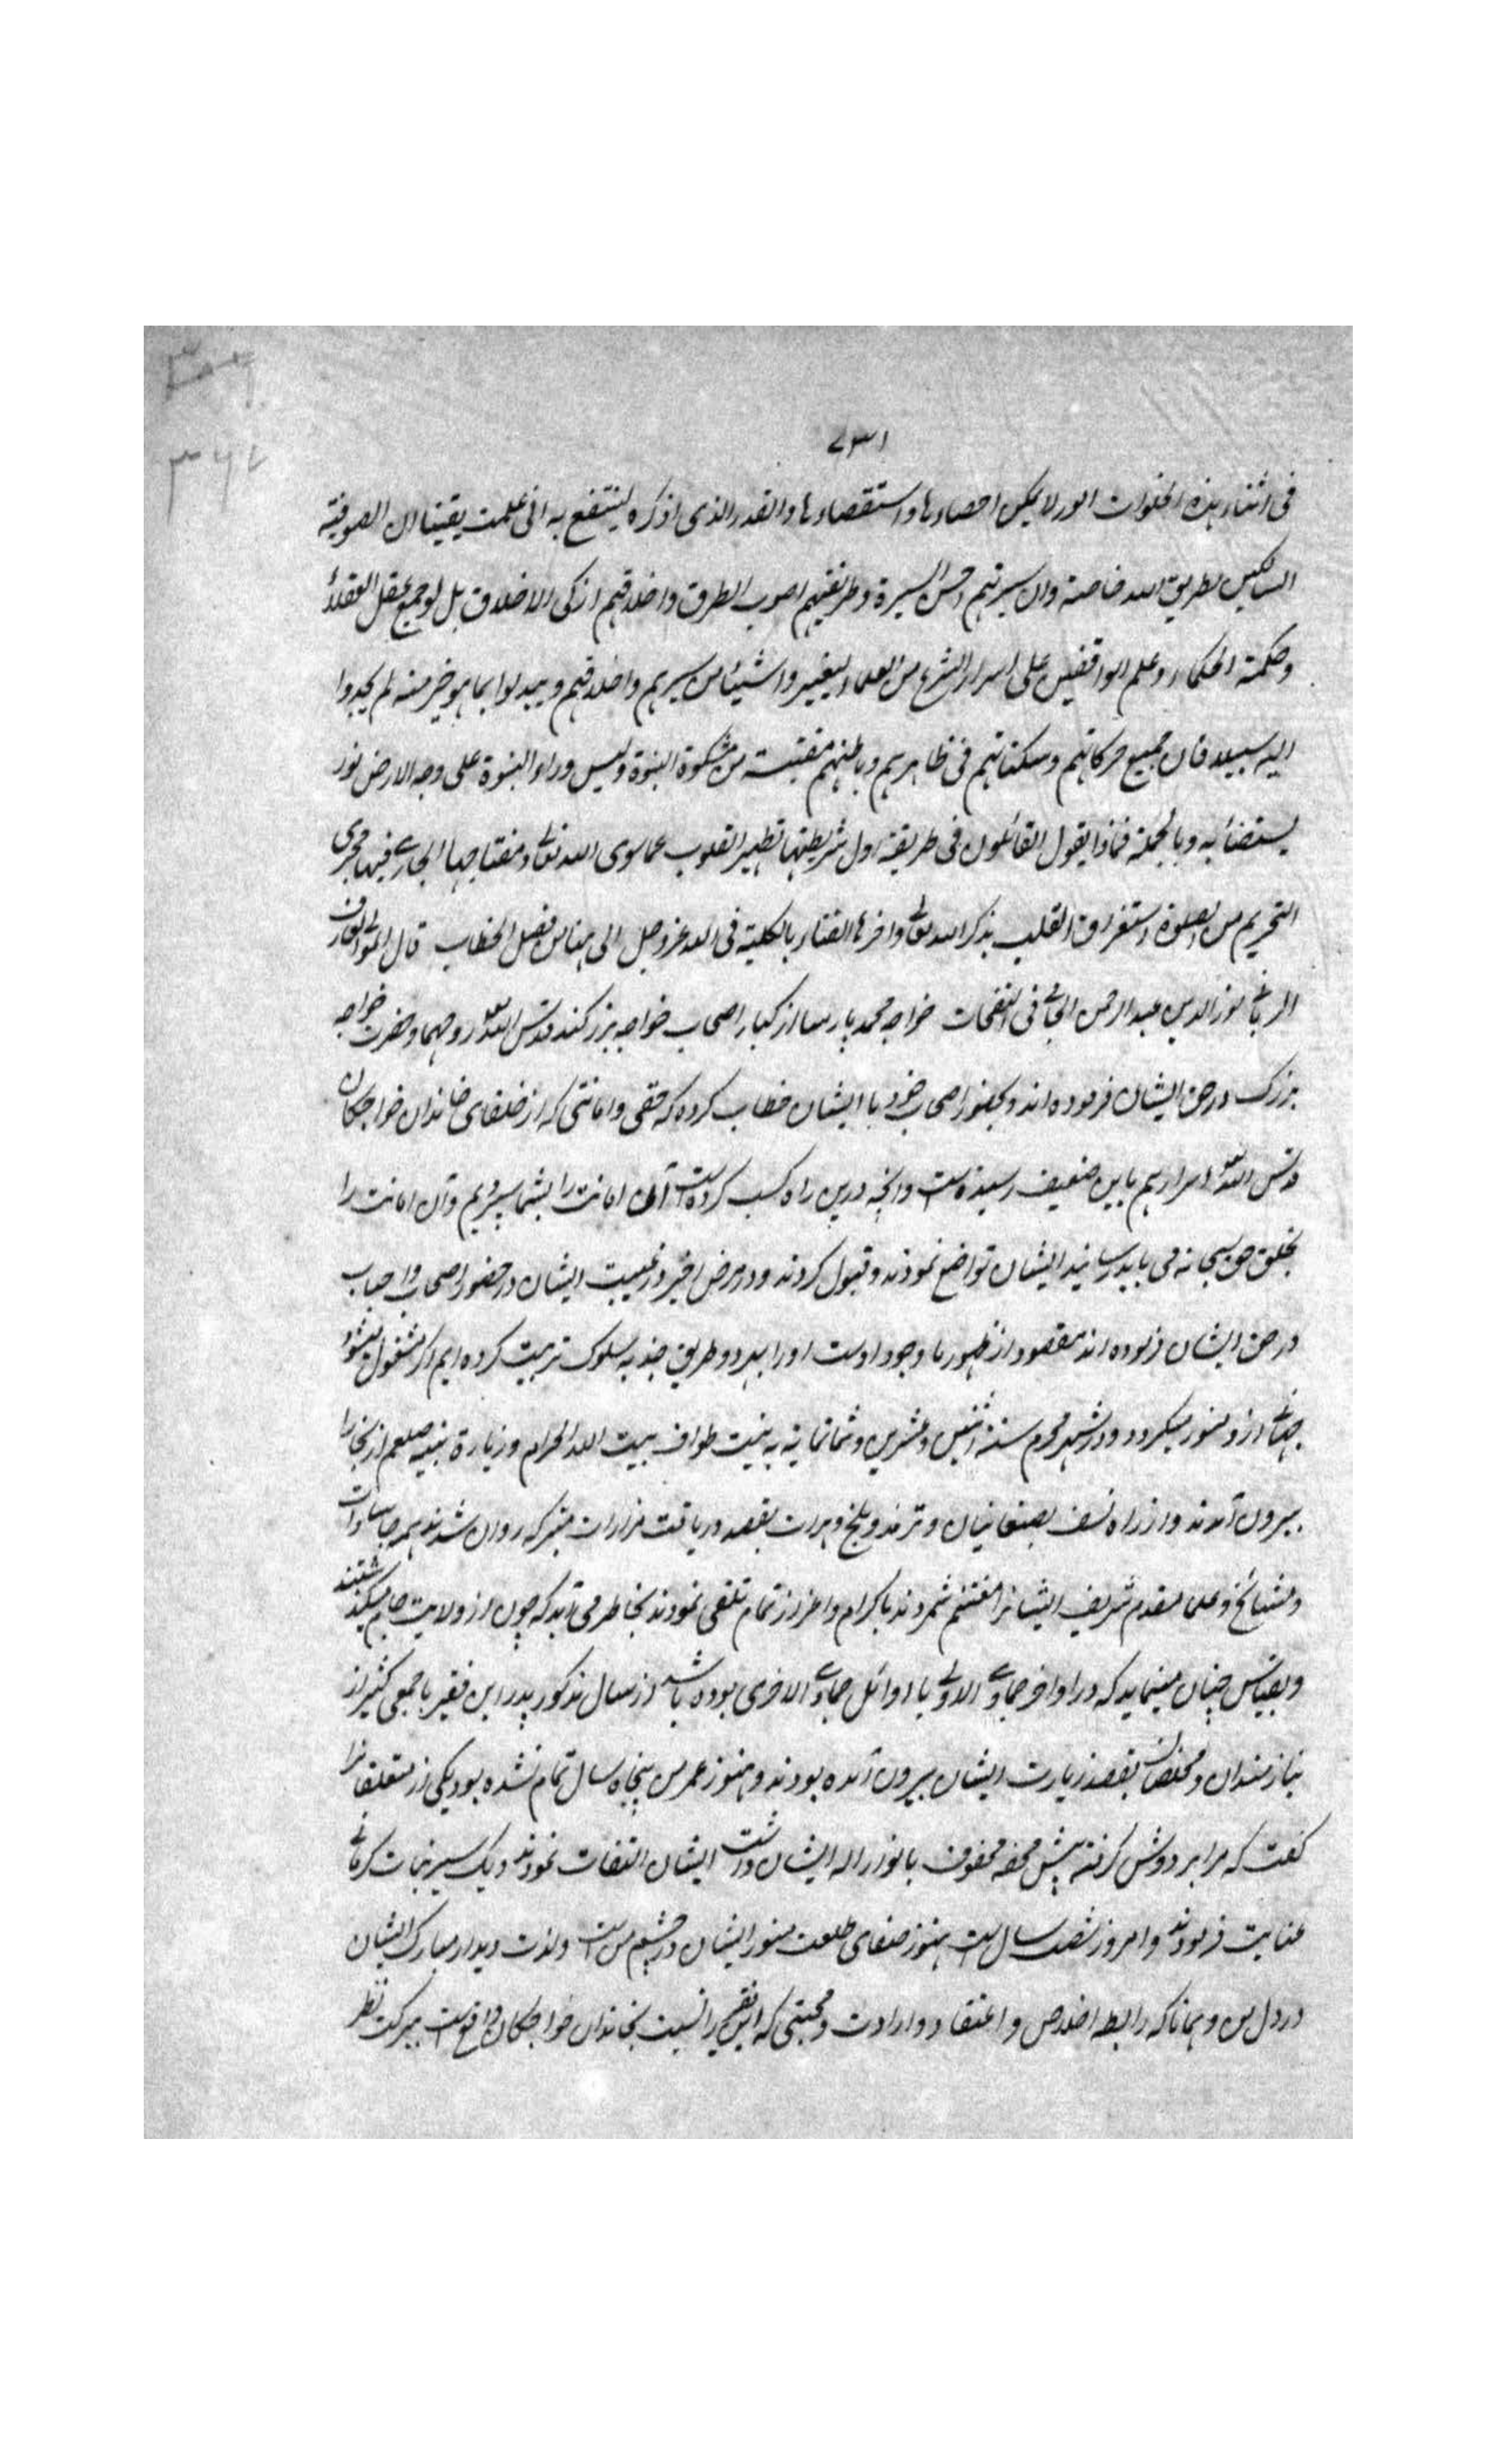 ۷۳۱
فی اثناء هذه الخلوات امور لا یمکن احصاءها واستقصاءها والقدر الذی اذکره لینتفع به انی علمت یقینا ان الصوفیة
السالکین لطریق الله خاصة وان سیرتهم احسن السیرة وطریقتهم اصوب الطرق واخلاقهم ازکی الاخلاق بل لو جمع عقل العقلاء
وحکمة الحکماء وعلم الواقفین علی اسرار الشرع من العلماء لیغیروا شیئا من سیرهم واخلاقهم ویبدلوا بما هو خیر منه لم یجدوا
الیه سبیلا فان جمیع حرکاتهم وسکناتهم فی ظاهرهم وباطنهم مقتبسة من مشکوة النبوة ولیس وراء النبوة علی وجه الارض نور
یستضاء به وبالجملة فماذا یقول القائلون فی طریقة اول شریطتها تطهیر القلوب عما سوی الله تعالی ومفتاحها الجاری فیها مجری
التحریم من الصلوة استغراق القلب بذکر الله تعالی وآخرها الفناء بالکلیة فی الله عز وجل الی هنا من فصل الخطاب قال المولی العارف
الربانی نور الدین عبد الرحمن الجامی فی النفحات خواجه محمد پارسا از کبار اصحاب خواجه بزرگند قدس الله تعالی روحهما وحضرت خواجه
بزرگ در حق ایشان فرموده اند وبحضور اصحاب خود با ایشان خطاب کرده که حقی وامانتی که از خلفای خاندان خواجگان
قدس الله تعالی اسرارهم باین ضعیف رسیده است وآنچه درین راه کسب کرده است آن امانت را بشما سپردیم وآن امانت را
بخلق حق سبحانه می باید رسانید ایشان تواضع نمودند وقبول کردند ودر مرض اخیر در غیبت ایشان در حضور اصحاب واحباب
در حق ایشان فرموده اند مقصود از ظهور ما وجود اوست او را بهر دو طریق جذبه سلوک تربیت کرده ایم اگر مشغول میشود
جهانی ازو منور میگردد ودر شهر محرم سنة اثنین وعشرین وثمانمایة به نیت طواف بیت الله الحرام وزیارة نبیه صلعم از بخارا
بیرون آمدند واز راه نسف بصغانیان وترمذ وبلخ وهرات بقصد دریافت مزارات متبرکه روان شدند همه جا سادات
ومشائخ وعلما مقدم شریف ایشانرا مغتنم شمردند باکرام واعزاز تمام تلقی نمودند بخاطر می آید که چون از ولایت جام میگذشتند
وبقیاس چنان مینماید که در اواخر جمادی الاولی یا اوائل جمادی الاخری بوده باشد از سال مذکور پدر این فقیر با جمعی کثیر از
نیازمندان ومخلصان بقصد زیارت ایشان بیرون آمده بودند وهنوز عمر من پنجاه سال تمام نشده بود یکی از متعلقانرا
گفت که مرا بر دوش گرفته پیش محفه محفوف بانوار اله ایشان داشت ایشان التفات نمودند ویک سیر نبات کرمانی
عنایت فرمودند وامروز شصت سال است هنوز صفای طلعت منور ایشان در چشم من است ولذت دیدار مبارک ایشان
در دل من وهمانا که رابطه اخلاص واعتقاد وارادت ومحبتی که این فقیر را نسبت بخاندان خواجگان واقع است ببرکت نظر